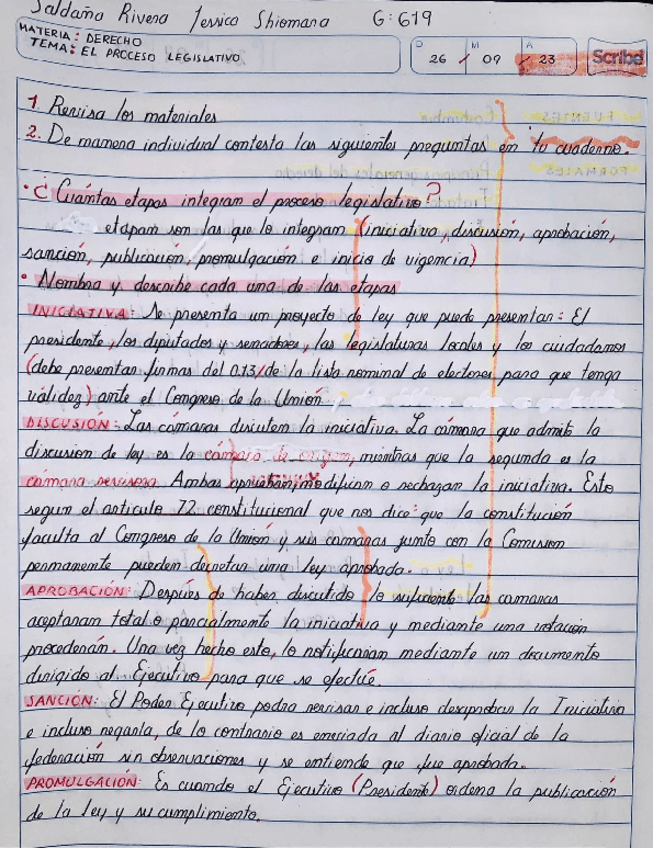 Saldaña Rivera Jessica Shiomara G: 619
MATERIA: DERECHO
TEMA: EL PROCESO LEGISLATIVO
D M A
26 / 09 / 23
Scribe
1. Revisa los materiales
2. De manera individual contesta las siguientes preguntas en tu cuaderno.
• ¿Cuántas etapas integran el proceso legislativo?
etapam son las que lo integran (iniciativa, discusión, aprobación,
sanción, publicación, promulgación e inicio de vigencia)
• Nombra y describe cada una de las etapas
INICIATIVA: Se presenta un proyecto de ley que puede presentar: El
presidente, los diputados y senadores, las legislaturas locales y los ciudadanos
(debe presentar firmas del 0.13% de la lista nominal de electores para que tenga
válidez) ante el Congreso de la Unión
DISCUSIÓN: Las cámaras discuten la iniciativa. La cámara que admite la
discusion de ley es la cámara de origen, mientras que la segunda es la
cámara revisora. Ambas aprueban, modifican o rechazan la iniciativa. Esto
segun el articulo 72 constitucional que nos dice: que la constitución
faculta al Congreso de la Unión y sus camaras junto con la Comision
permanente pueden decretar una ley aprobada.
APROBACIÓN: Después de haber discutido lo suficiente las camaras
aceptaran total o parcialmente la iniciativa y mediante una votación
procederán. Una vez hecho esto, lo notificarian mediante un documento
dirigido al Ejecutivo para que se efectúe.
SANCIÓN: El Poder Ejecutivo podra revisar e incluso desaprobar la Iniciativa
e incluso negarla, de lo contrario es enviada al diario oficial de la
federación sin observaciones y se entiende que fue aprobada.
PROMULGACIÓN: Es cuando el Ejecutivo (Presidente) ordena la publicación
de la ley y su cumplimiento.